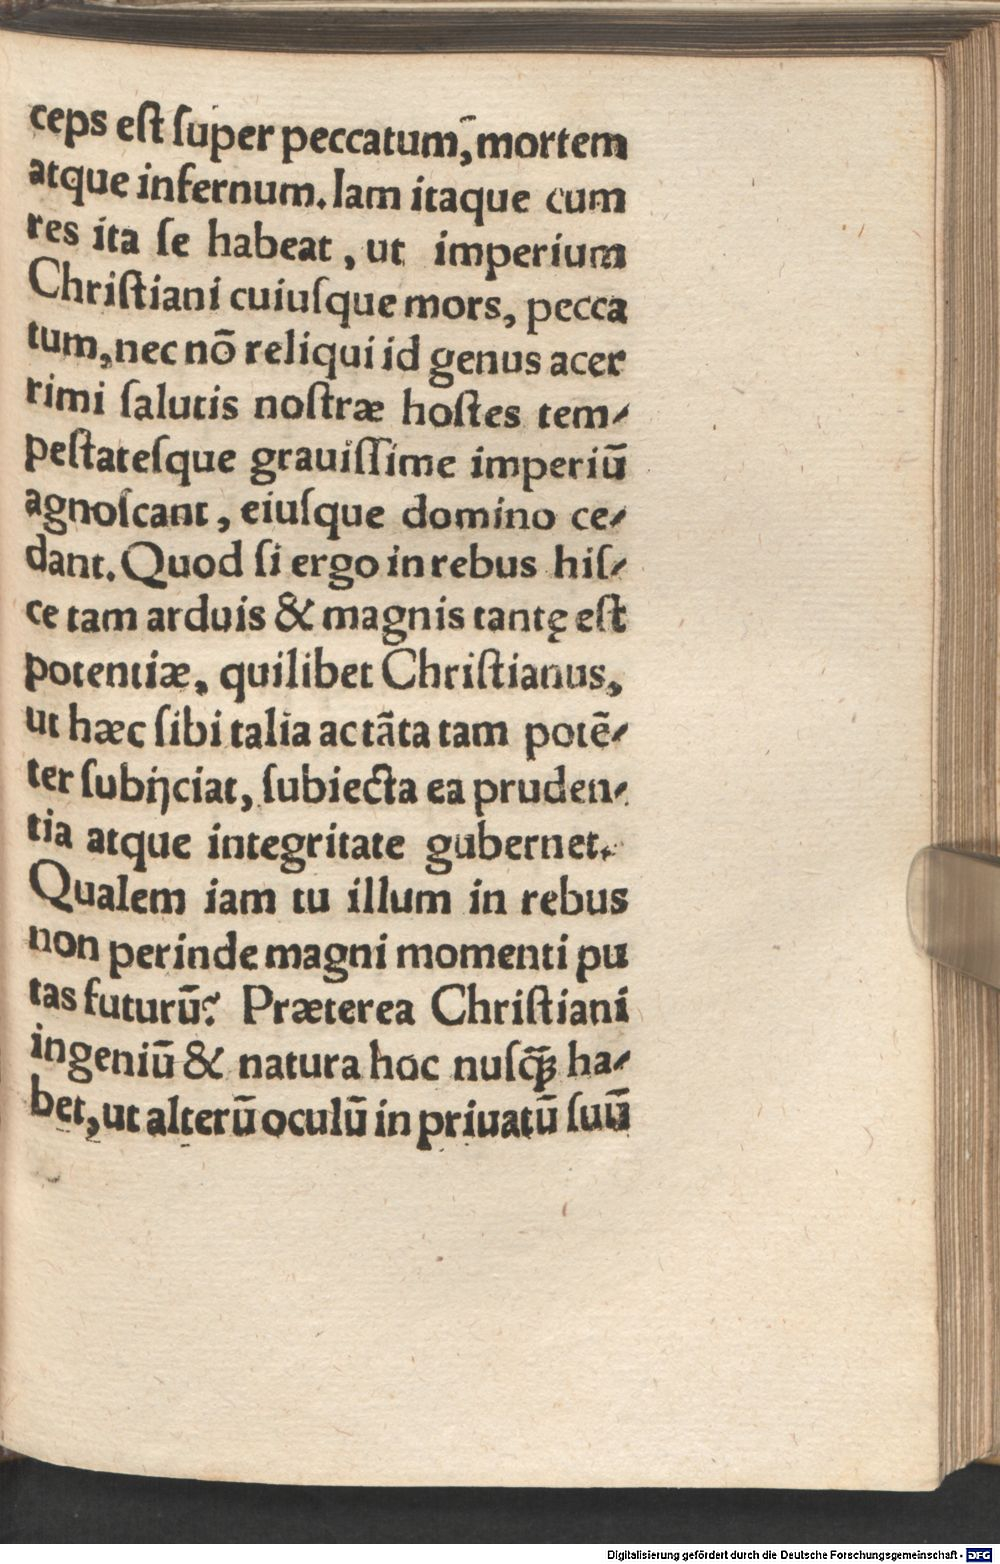 ceps est ſuper peccatum, mortem
atque infernum. Iam itaque cum
res ita ſe habeat, ut imperium
Chriſtiani cuiuſque mors, pecca
tum, nec nō reliqui id genus acer
rimi ſalutis noſtræ hoſtes tem⸗
peſtateſque grauiſſime imperiū
agnoſcant, eiuſque domino ce⸗
dant. Quod ſi ergo in rebus hiſ⸗
ce tam arduis & magnis tantę eſt
potentiæ, quilibet Chriſtianus,
ut hæc ſibi talia ac tāta tam potē⸗
ter ſubijciat, ſubiecta ea pruden⸗
tia atque integritate gubernet.
Qualem iam tu illum in rebus
non perinde magni momenti pu
tas futurū? Præterea Chriſtiani
ingeniū & natura hoc nuſꝗ̄ ha⸗
bet, ut alterū oculū in priuatū ſuū
Digitalisierung gefördert durch die Deutsche Forschungsgemeinschaft - DFG